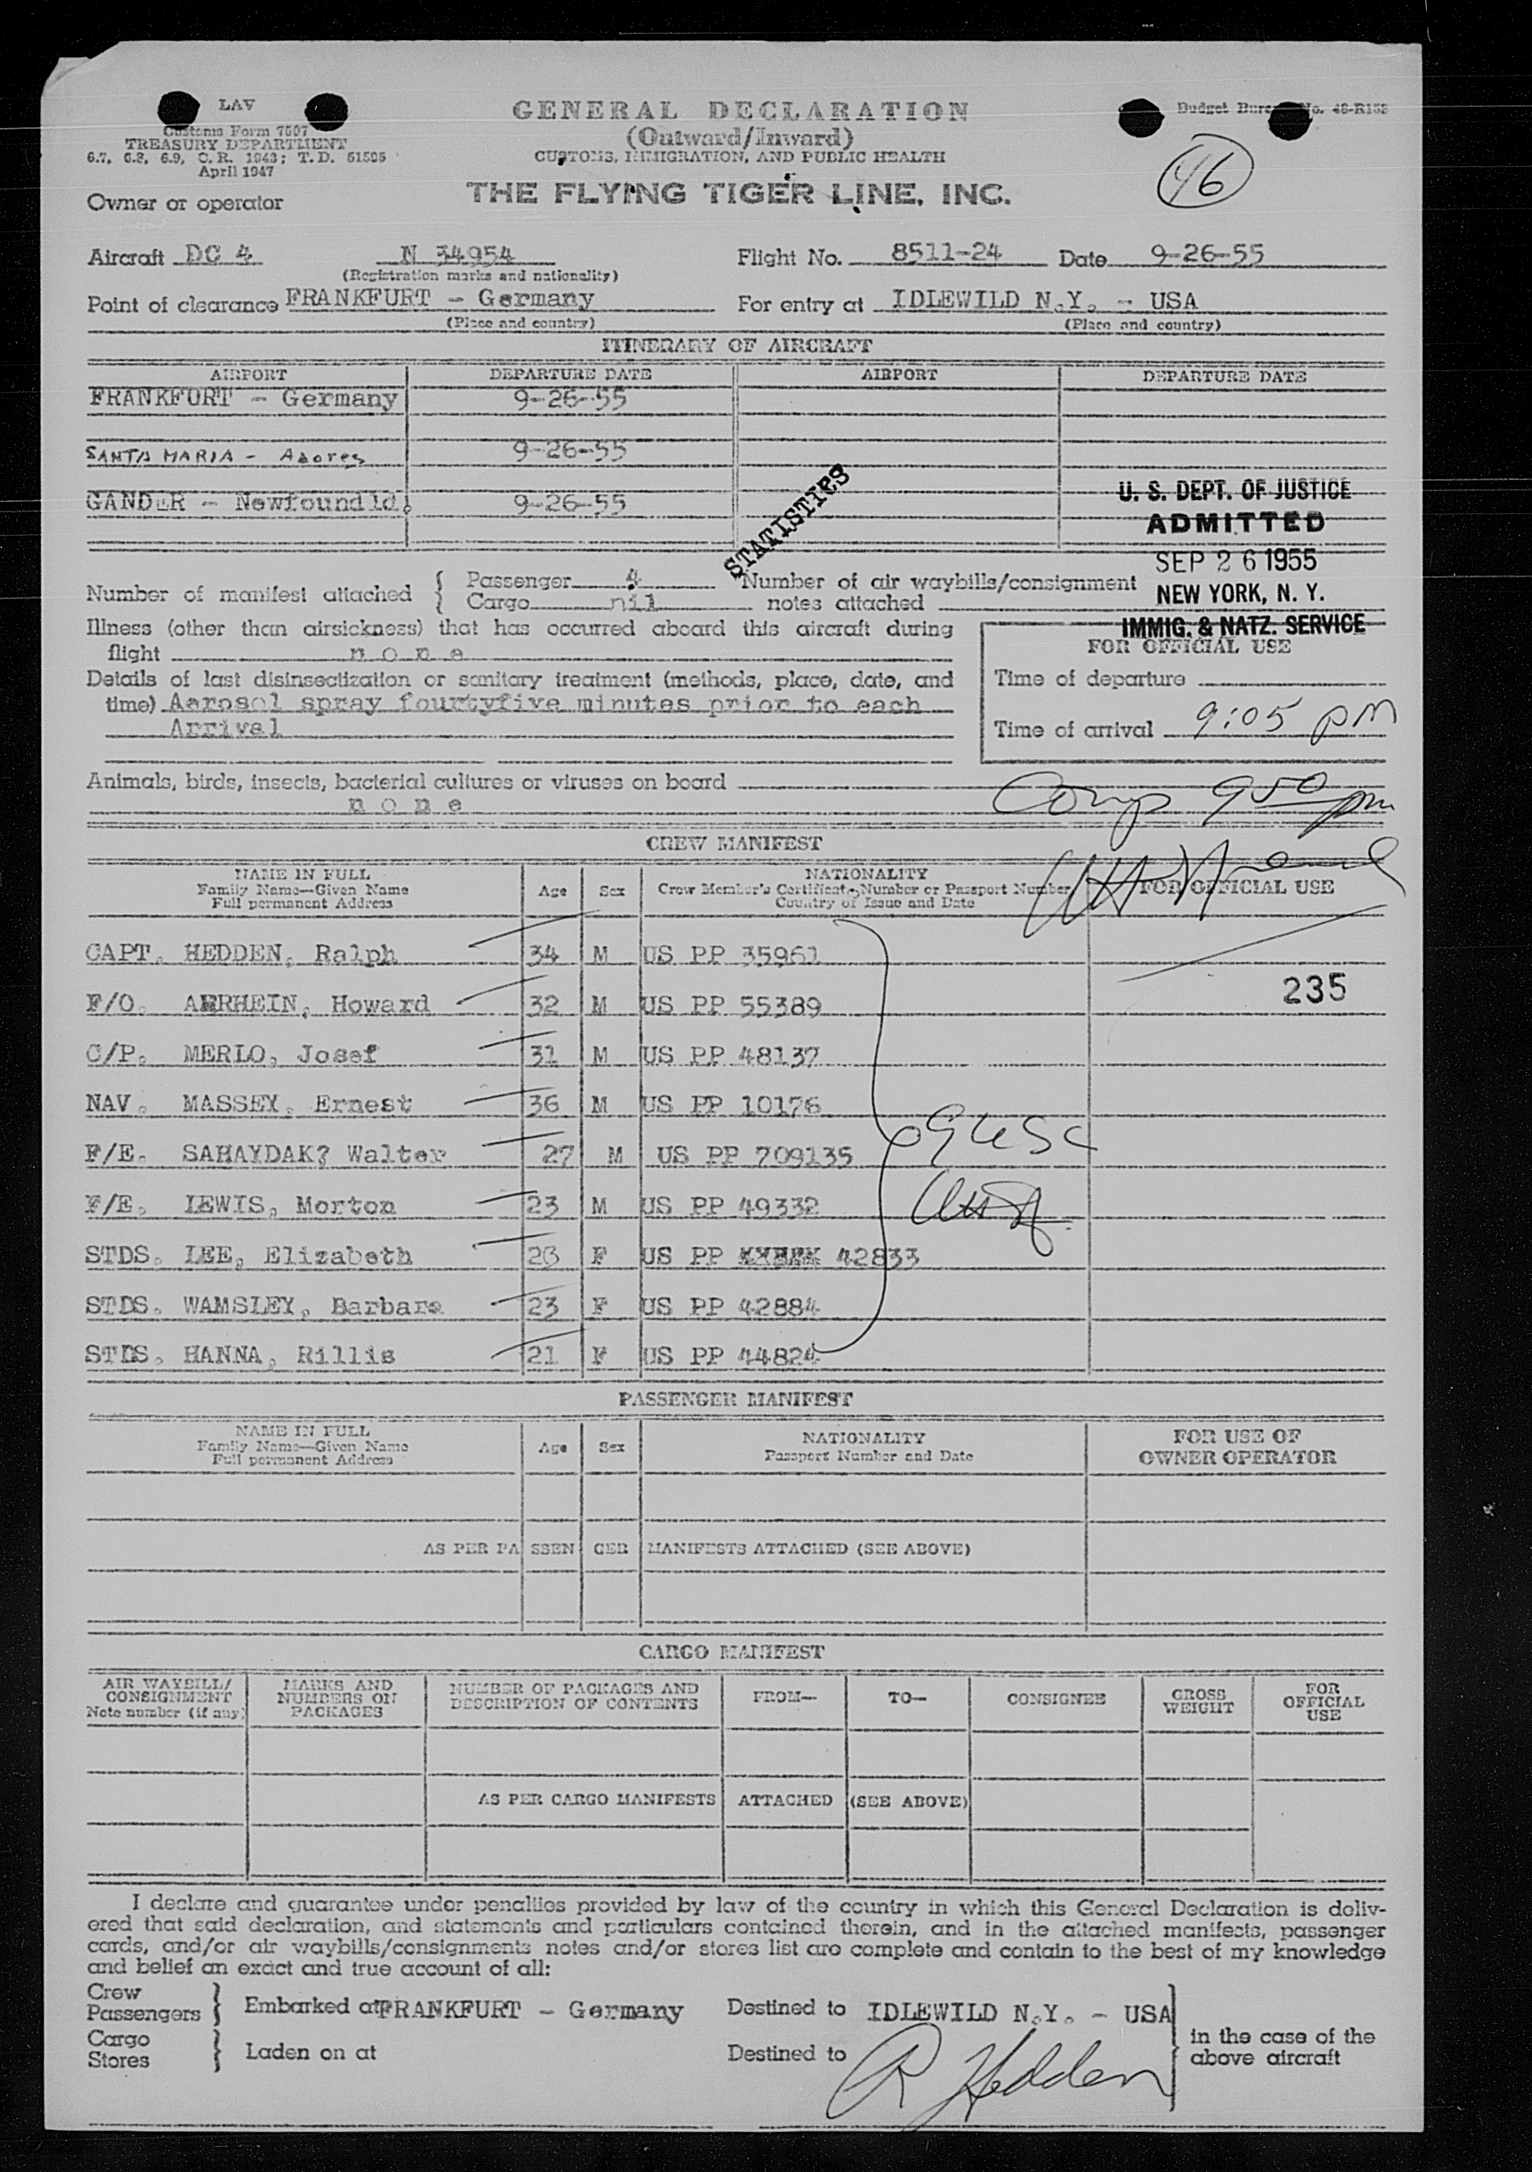 LAV
Customs Form 7507
TREASURY DEPARTMENT
6.7, 6.8, 6.9, C.R. 1943; T.D. 51505
April 1947
GENERAL DECLARATION
(Outward/Inward)
CUSTOMS, IMMIGRATION, AND PUBLIC HEALTH
THE FLYING TIGER LINE, INC.
Budget Bureau No. 48-R138
46
Owner or operator
Aircraft DC 4 N 34954 Flight No. 8511-24 Date 9-26-55
(Registration marks and nationality)
Point of clearance FRANKFURT - Germany For entry at IDLEWILD N.Y. - USA
(Place and country) (Place and country)
ITINERARY OF AIRCRAFT
AIRPORT DEPARTURE DATE AIRPORT DEPARTURE DATE
FRANKFURT - Germany 9-26-55
SANTA MARIA - Adores 9-26-55
GANDER - Newfoundld. 9-26-55
STATISTICS
U. S. DEPT. OF JUSTICE
ADMITTED
SEP 26 1955
NEW YORK, N. Y.
IMMIG. & NATZ. SERVICE
Number of manifest attached { Passenger 4 Number of air waybills/consignment
Cargo nil notes attached
Illness (other than airsickness) that has occurred aboard this aircraft during
flight n o n e
FOR OFFICIAL USE
Details of last disinsectization or sanitary treatment (methods, place, date, and
time) Aerosol spray fourtyfive minutes prior to each
Arrival
Time of departure
Time of arrival 9:05 pm
Animals, birds, insects, bacterial cultures or viruses on board
n o n e
Comp 950 pm
CREW MANIFEST
NAME IN FULL
Family Name—Given Name
Full permanent Address
Age Sex
NATIONALITY
Crew Member's Certificate Number or Passport Number
Country of Issue and Date
FOR OFFICIAL USE
CAPT. HEDDEN, Ralph 34 M US PP 35961
235
F/O. AHRHEIN, Howard 32 M US PP 55389
C/P. MERLO, Josef 31 M US PP 48137
NAV. MASSEY, Ernest 36 M US PP 10176
F/E. SAHAYDAK? Walter 27 M US PP 709135
F/E. LEWIS, Morton 23 M US PP 49332
STDS. LEE, Elizabeth 23 F US PP 42833
STDS. WAMSLEY, Barbara 23 F US PP 42884
STDS. HANNA, Rillis 21 F US PP 44824
PASSENGER MANIFEST
NAME IN FULL
Family Name—Given Name
Full permanent Address
Age Sex
NATIONALITY
Passport Number and Date
FOR USE OF
OWNER OPERATOR
AS PER PASSENGER MANIFESTS ATTACHED (SEE ABOVE)
CARGO MANIFEST
AIR WAYBILL/
CONSIGNMENT
Note number (if any)
MARKS AND
NUMBERS ON
PACKAGES
NUMBER OF PACKAGES AND
DESCRIPTION OF CONTENTS
FROM— TO— CONSIGNEE
GROSS
WEIGHT
FOR
OFFICIAL
USE
AS PER CARGO MANIFESTS ATTACHED (SEE ABOVE)
I declare and guarantee under penalties provided by law of the country in which this General Declaration is deliv-
ered that said declaration, and statements and particulars contained therein, and in the attached manifests, passenger
cards, and/or air waybills/consignments notes and/or stores list are complete and contain to the best of my knowledge
and belief an exact and true account of all:
Crew
Passengers } Embarked at FRANKFURT - Germany Destined to IDLEWILD N.Y. - USA
Cargo
Stores } Laden on at Destined to
in the case of the
above aircraft
R Hedden